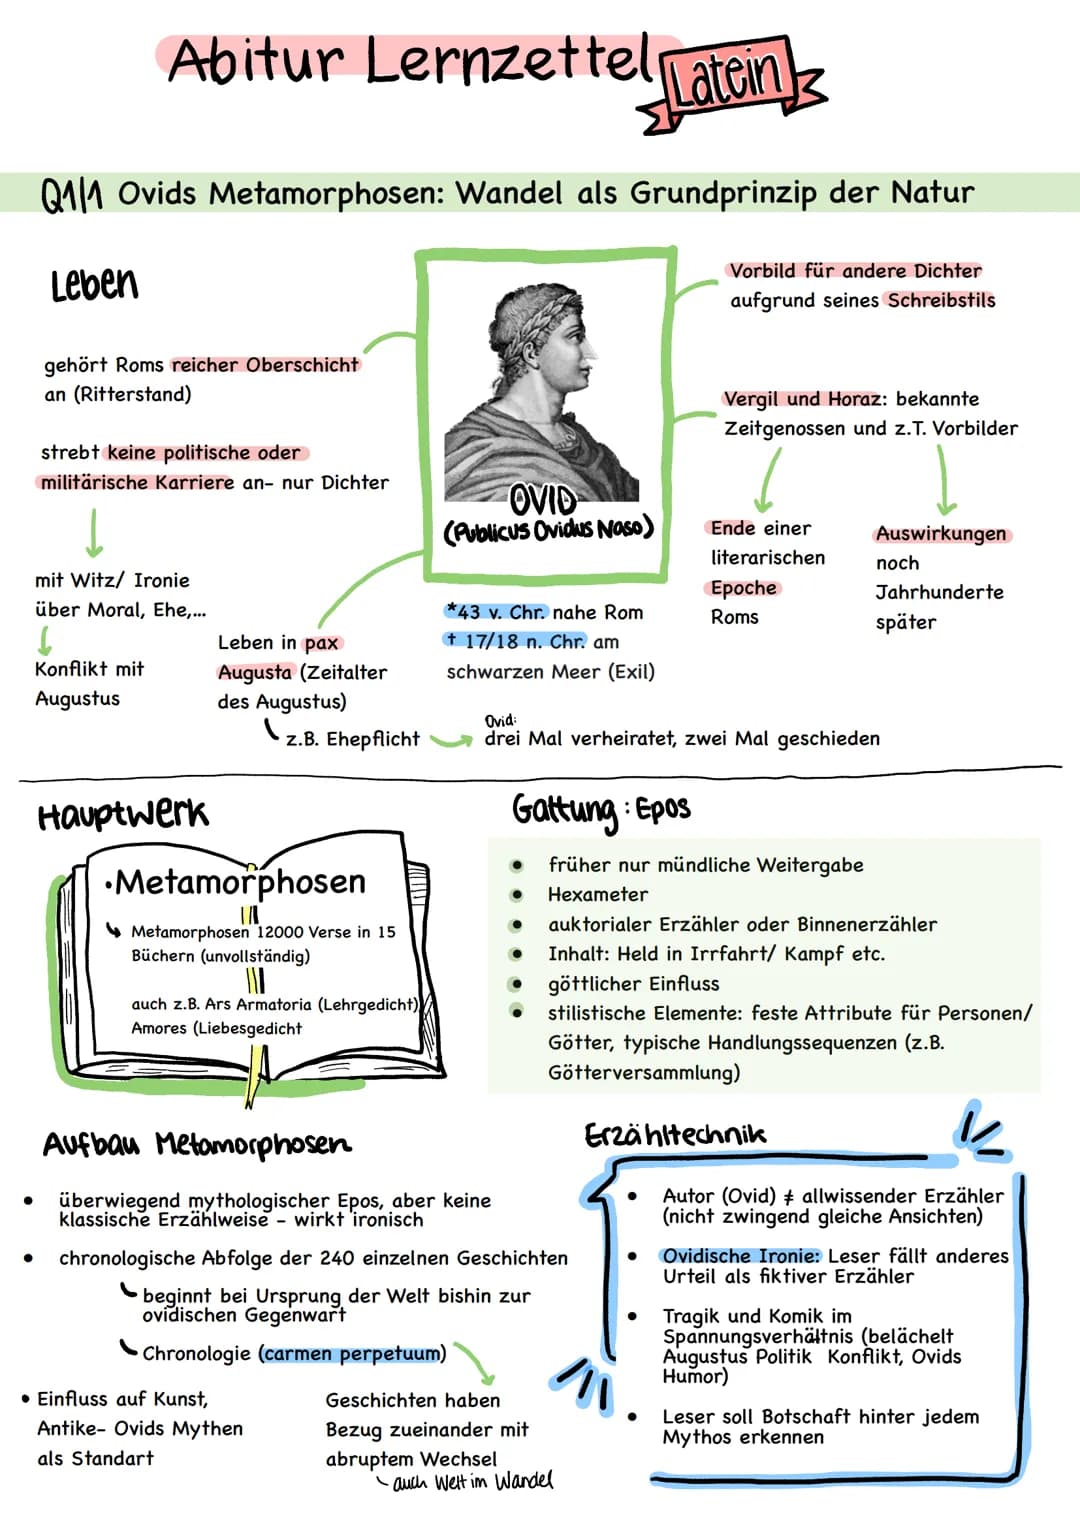 Abitur Lernzettel
Latein
Q1/1 Ovids Metamorphosen: Wandel als Grundprinzip der Natur
Leben
gehört Roms reicher Oberschicht
an (Ritterstand)
strebt keine politische oder
militärische Karriere an- nur Dichter
mit Witz/ Ironie
über Moral, Ehe,...
Konflikt mit
Augustus
Leben in pax
Augusta (Zeitalter
des Augustus)
z.B. Ehepflicht
Ovid:
drei Mal verheiratet, zwei Mal geschieden
OVID
(Publicus Ovidus Naso)
*43 v. Chr. nahe Rom
† 17/18 n. Chr. am
schwarzen Meer (Exil)
Vorbild für andere Dichter
aufgrund seines Schreibstils
Vergil und Horaz: bekannte
Zeitgenossen und z.T. Vorbilder
Ende einer
literarischen
Epoche
Roms
Auswirkungen
noch
Jahrhunderte
später
Hauptwerk
•Metamorphosen
Metamorphosen 12000 Verse in 15
Büchern (unvollständig)
auch z.B. Ars Armatoria (Lehrgedicht)
Amores (Liebesgedicht
Gattung: Epos
• früher nur mündliche Weitergabe
• Hexameter
• auktorialer Erzähler oder Binnenerzähler
• Inhalt: Held in Irrfahrt/ Kampf etc.
• göttlicher Einfluss
• stilistische Elemente: feste Attribute für Personen/
Götter, typische Handlungssequenzen (z.B.
Götterversammlung)
Aufbau Metamorphosen
• überwiegend mythologischer Epos, aber keine
klassische Erzählweise – wirkt ironisch
• chronologische Abfolge der 240 einzelnen Geschichten
beginnt bei Ursprung der Welt bishin zur
ovidischen Gegenwart
Chronologie (carmen perpetuum)
• Einfluss auf Kunst,
Antike- Ovids Mythen
als Standart
Geschichten haben
Bezug zueinander mit
abruptem Wechsel
auch Welt im Wandel
Erzähltechnik
• Autor (Ovid) ≠ allwissender Erzähler
(nicht zwingend gleiche Ansichten)
• Ovidische Ironie: Leser fällt anderes
Urteil als fiktiver Erzähler
• Tragik und Komik im
Spannungsverhältnis (belächelt
Augustus Politik Konflikt, Ovids
Humor)
• Leser soll Botschaft hinter jedem
Mythos erkennen